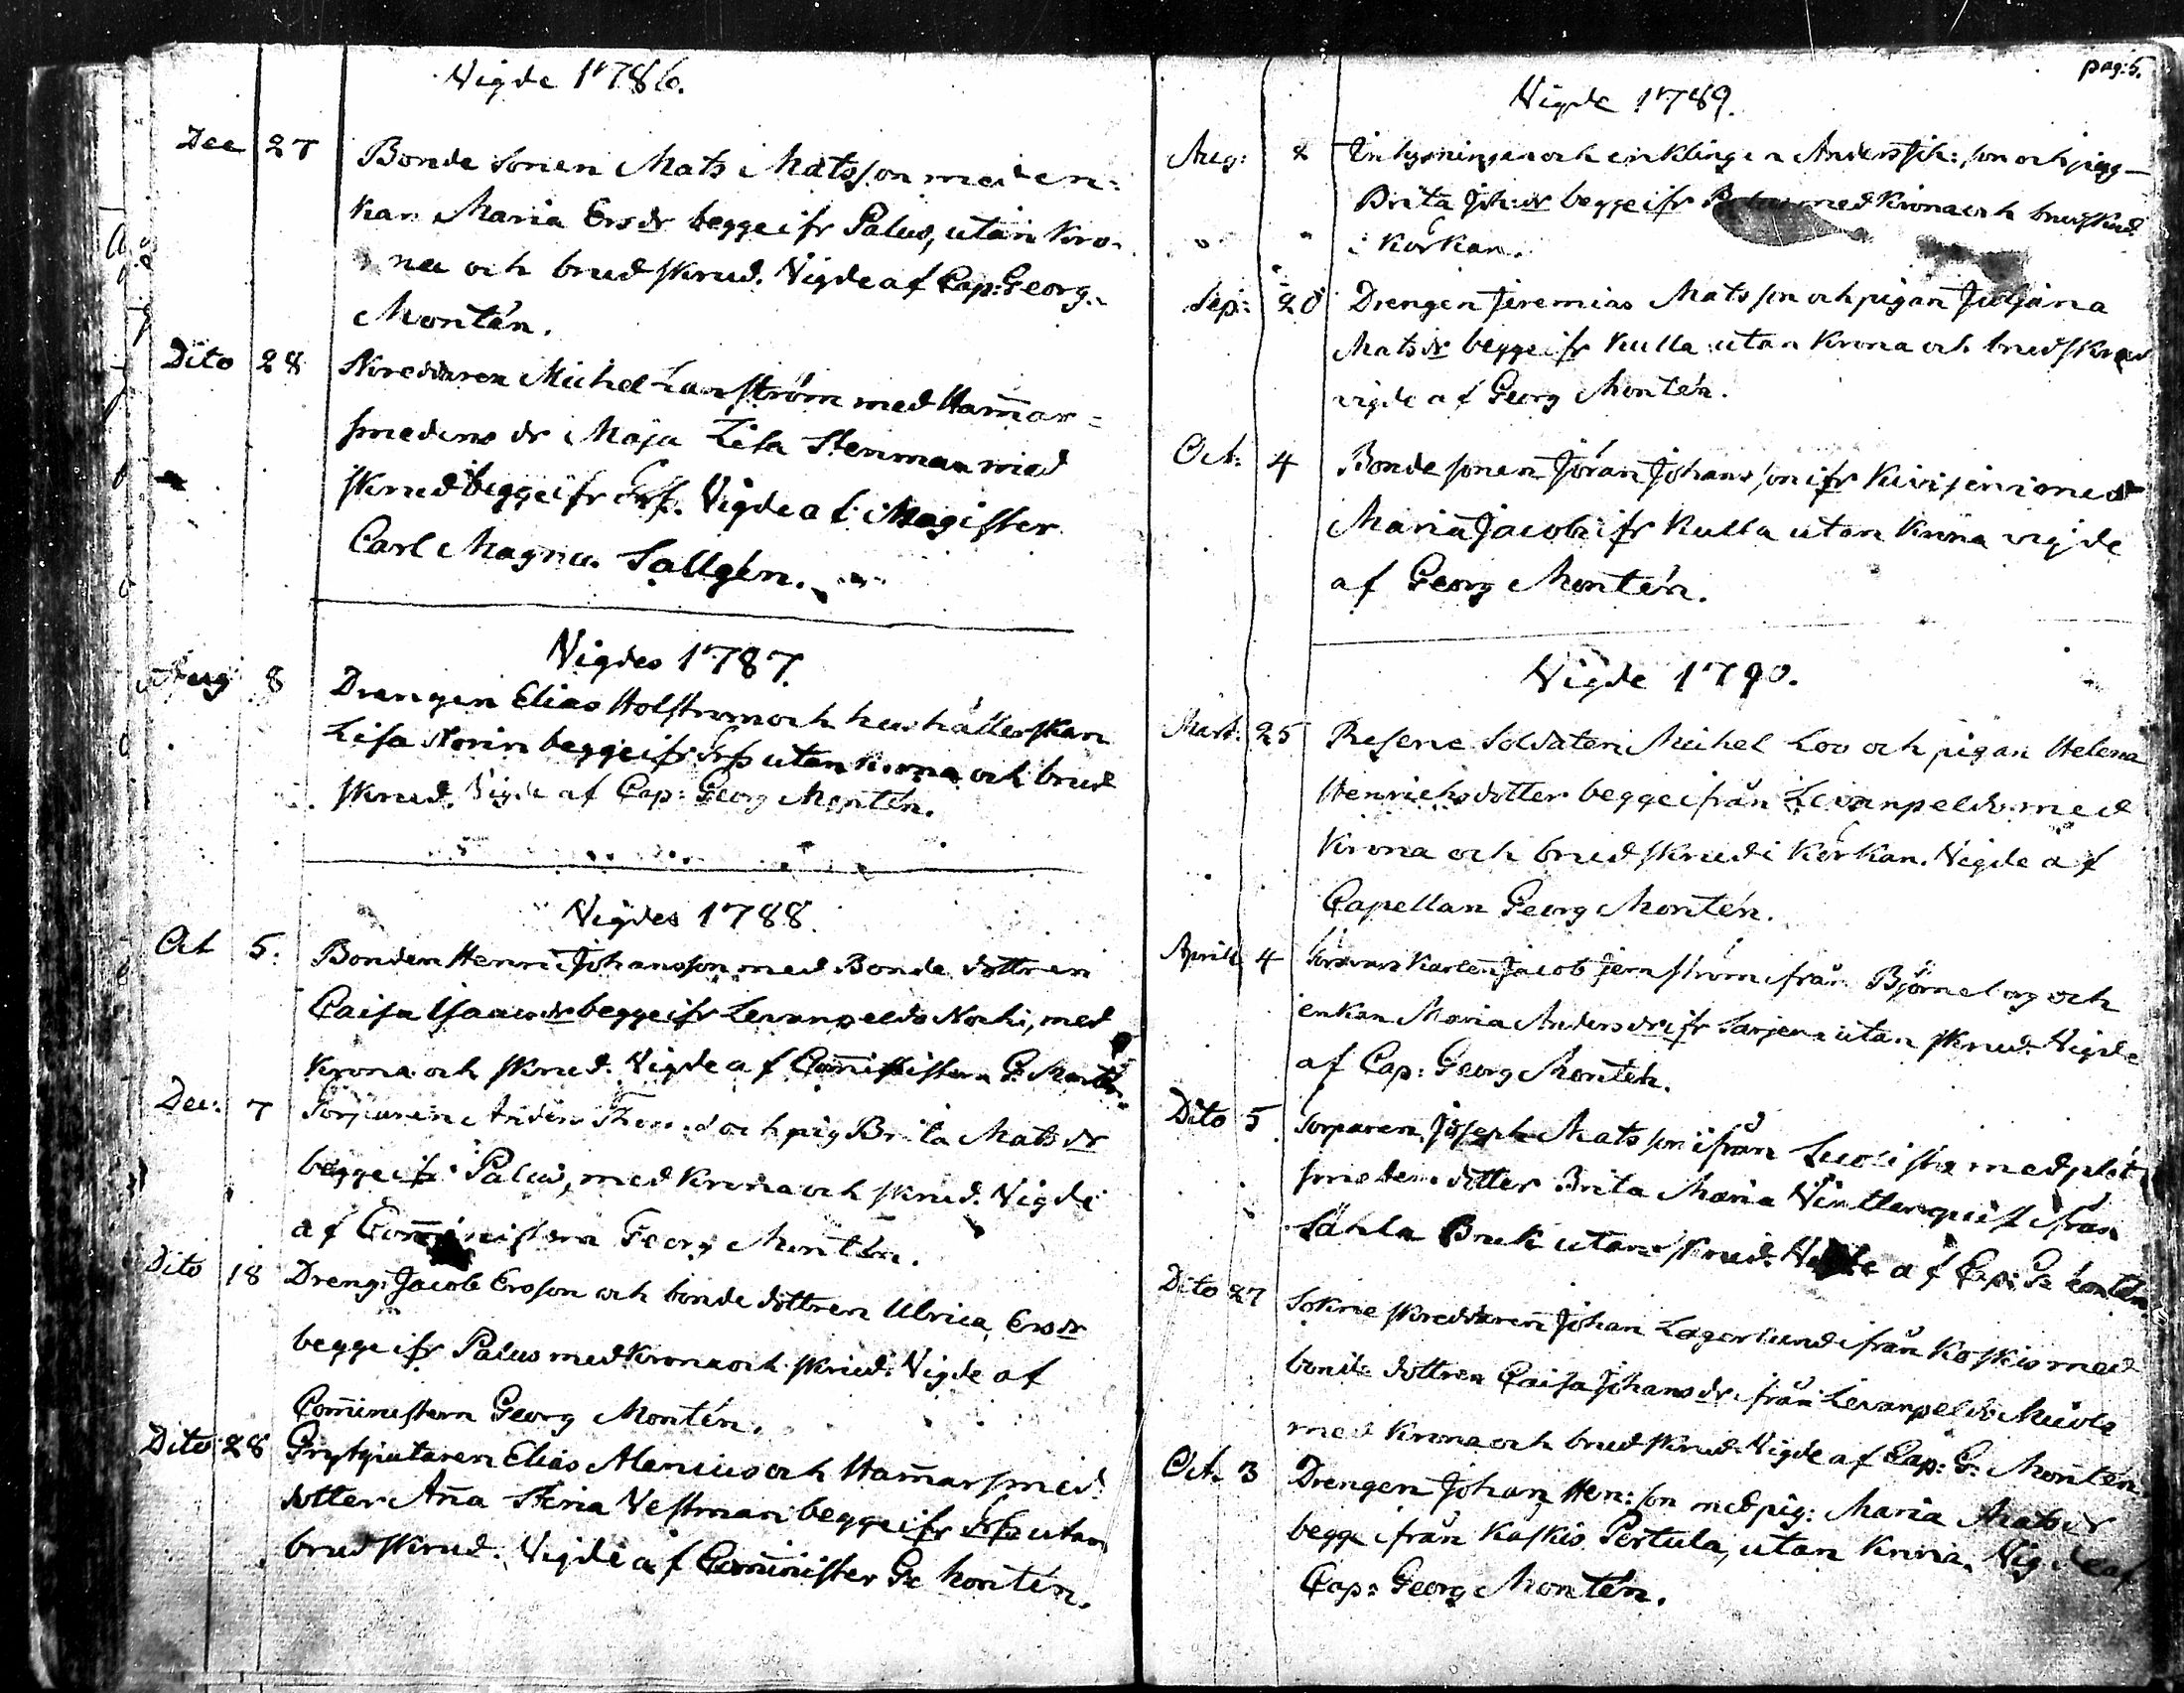 Vigde 1786.
Dec 27 Bonde Sonen Mats Matsson med en=
kan Maria Ersdr begge ifr Palus, utan kro-
na och brudskrud. Vigde af Cap: Georg
Montén.
Dito 28 Skreddaren Michel Lanström med Ham̄ar=
smedens dr Maja Lisa Stenman med
skrud begge ifr Vigde af Magister
Carl Magnu. Sallgén.
Vigdes 1787.
Aug 8 Drengen Elias Holstrom och hushållerskan
Lisa Norin begge ifr utan krona och brud
skrud. Vigde af Cap: Georg Montén.
Vigdes 1788.
Oct 5: Bonden Henric Johansson med Bonde dottren
Caisa Isacsdr begge ifr Levanpeldo Nochi, med
Krona och skrud. Vigde af G: Montén.
Dec: 7 Torparen Anders och pig Brita Matsdr
begge ifr Palus, med Krona och skrud. Vigde
af Com̄inistern Georg Montén.
Dito 18 Dreng: Jacob Ersson och bonde dottren Ulrica Ersdr
begge ifr Palus med Krona och skrud. Vigde af
Com̄inistern Georg Montén.
Dito 28 Grytgiutaren Elias Alenius och Ham̄arsmed:
dotter An̄a Stina Vestman begge ifr utan
brudskrud. Vigde af Com̄inister G: Montén.
pag: 5.
Vigde 1789.
Aug: 2 Inhysningen och enklingen Anders Joh: son och pig
Brita Joh: dr begge ifr med Krona och brudskrud
i Körkan.
Sep: 20 Drengen Jeremias Matsson och pigan Juliana
Matsdr begge ifr Kulla utan Krona och brudskrud
vigde af Georg Montén.
Oct: 4 Bondesonen Jöran Johansson ifr Kivijervi med
Maria Jacobs ifr Kulla utan Krona vigde
af Georg Montén.
Vigde 1790.
Mart: 25 Reserve Soldaten Michel Lov och pigan Helena
Henrichsdotter begge ifrån Levanpeldo med
Krona och brudskrud i Körkan. Vigde af
Capellan Georg Montén.
Aprill 4 Jacob Jernström ifrån Björneborg och
enkan Maria Andersdr ifr Sarjen utan skrud. Vigde
af Cap: Georg Montén.
Dito 5 Torparen Joseph Matsson ifrån med plåt
smedens dotter Brita Maria Vintterquist ifrån
Sahla Bruk utan skrud. Vigde af Cap: G: Montén
Dito 27 Sokne skreddaren Johan Lagerlund ifrån Koskis med
bonde dottren Caisa Johansdr ifrån Levanpeldo
med Krona och brudskrud. Vigde af Cap: G: Montén.
Oct. 3 Drengen Johan Hen: son med pig: Maria Matsdr
begge ifrån Kaskis Pertula, utan Krona. Vigde af
Cap: Georg Montén.